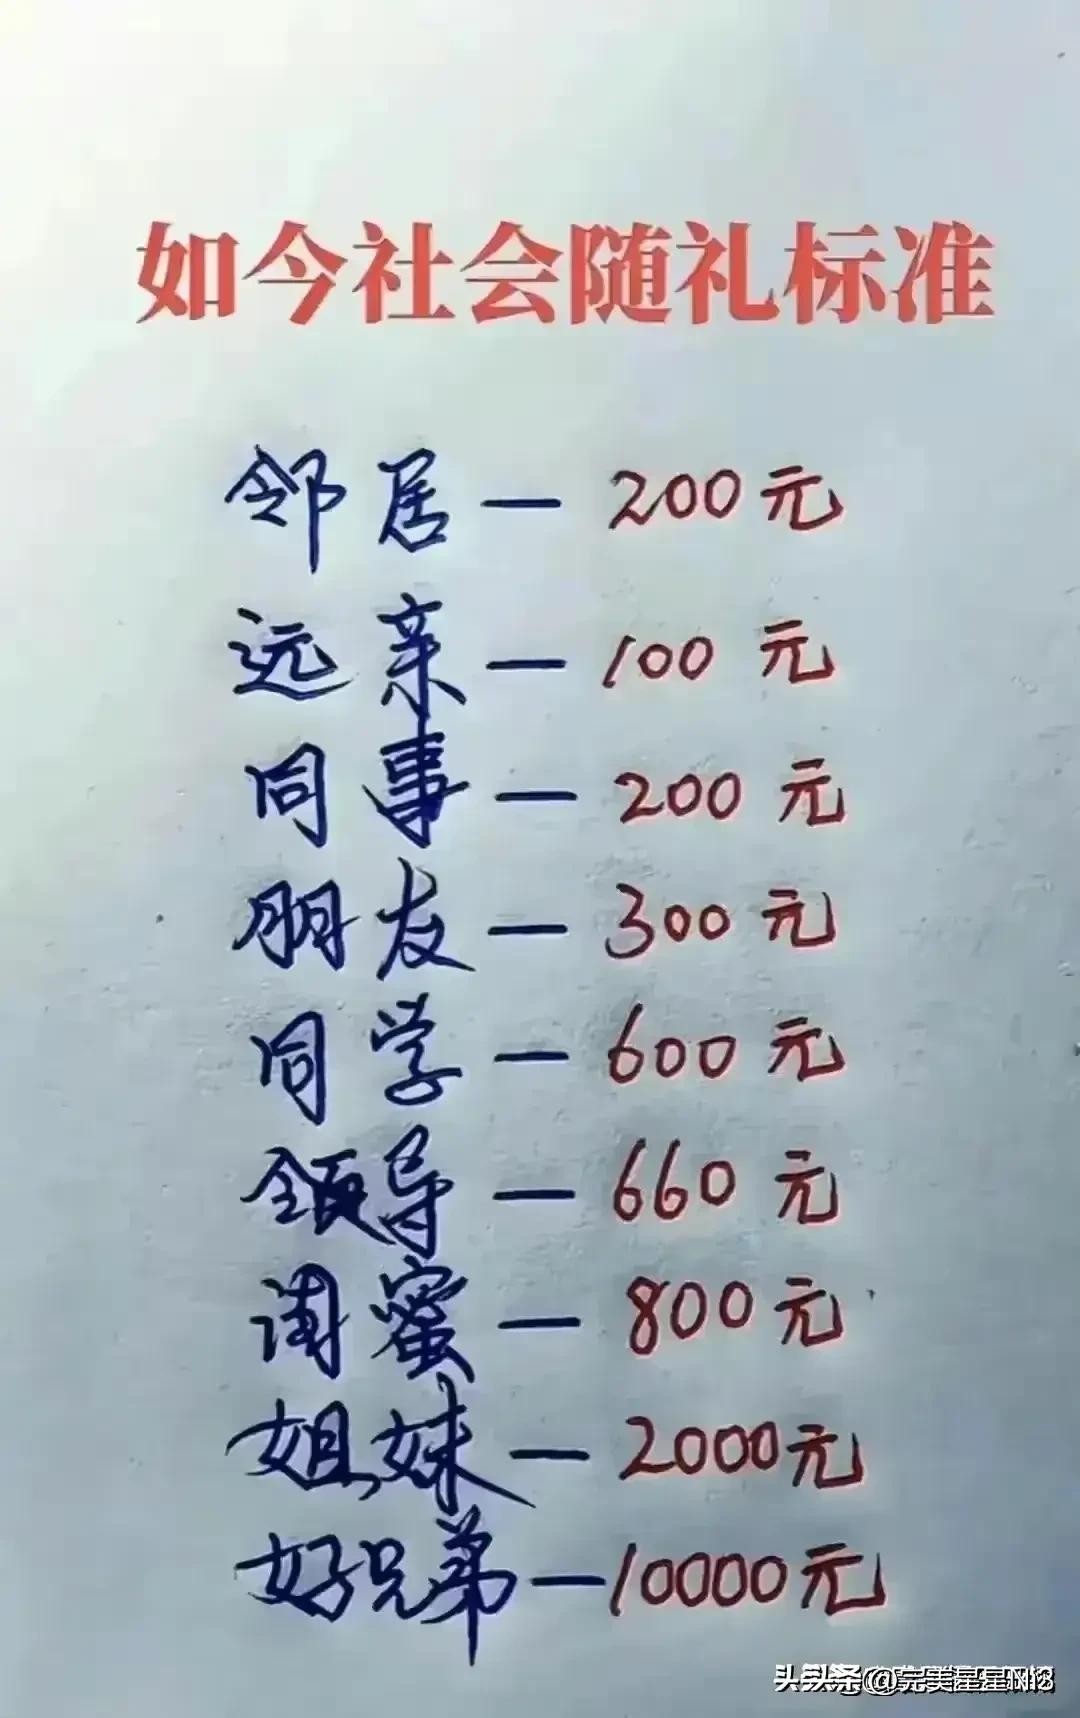 如今社会随礼标准
邻居—200元
远亲—100元
同事—200元
朋友—300元
同学—600元
领导—660元
闺蜜—800元
姐妹—2000元
好兄弟—10000元
头条@完美星星